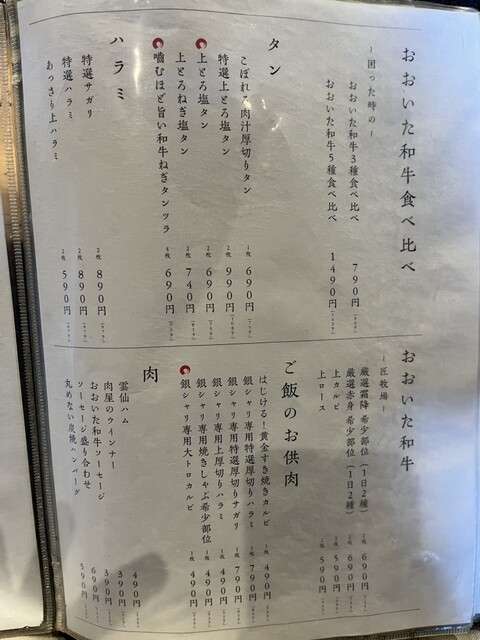 おおいた和牛食べ比べ
~困った時の~
おおいた和牛3種食べ比べ 790円
おおいた和牛5種食べ比べ 1490円
タン
こぼれる肉汁厚切りタン 1枚 690円
特選上とろ塩タン 2枚 990円
上とろ塩タン 2枚 690円
上とろねぎ塩タン 2枚 740円
噛むほど旨い和牛ねぎタンツラ 4枚 690円
ハラミ
特選サガリ 2枚 890円
特選ハラミ 2枚 890円
あっさり上ハラミ 2枚 590円
おおいた和牛
~匠牧場~
厳選霜降 希少部位(1日2種) 2枚 690円
厳選赤身 希少部位(1日2種) 2枚 690円
上カルビ 2枚 590円
上ロース 2枚 590円
ご飯のお供肉
はじける!黄金すき焼きカルビ 1枚 490円
銀シャリ専用特選厚切りハラミ 1枚 790円
銀シャリ専用特選厚切りサガリ 1枚 790円
銀シャリ専用上厚切りハラミ 1枚 490円
銀シャリ専用焼きしゃぶ希少部位 1枚 490円
銀シャリ専用大トロカルビ 1枚 490円
肉
雲仙ハム 490円
肉屋のウィンナー 390円
おおいた和牛ソーセージ 390円
ソーセージ盛り合わせ 690円
丸めない炭焼ハンバーグ 590円